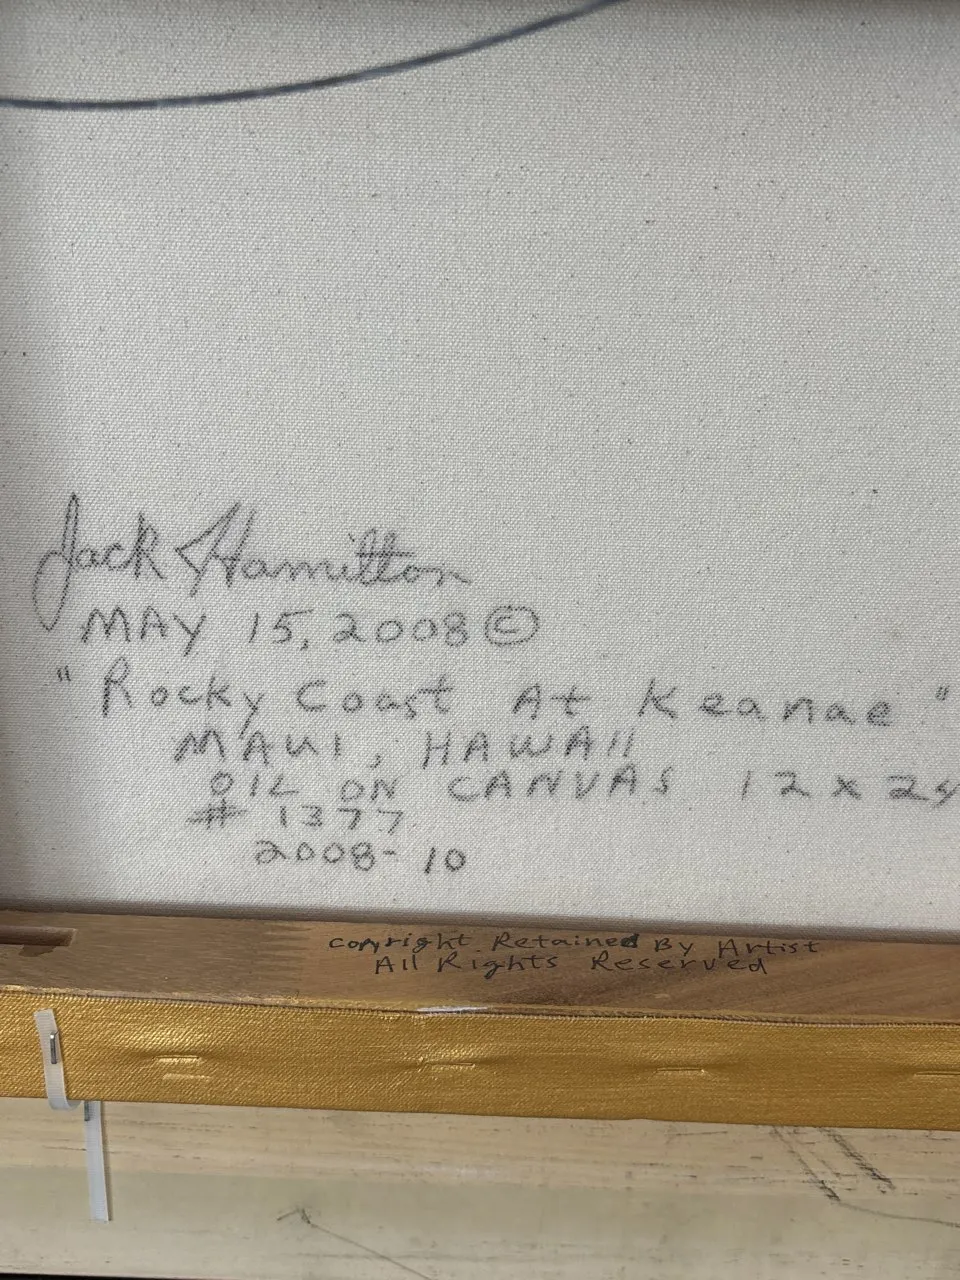 Jack Hamilton
MAY 15, 2008 ©
"Rocky Coast At Keanae"
MAUI, HAWAII
OIL ON CANVAS 12 x 24
# 1377
2008-10
Copyright Retained By Artist
All Rights Reserved